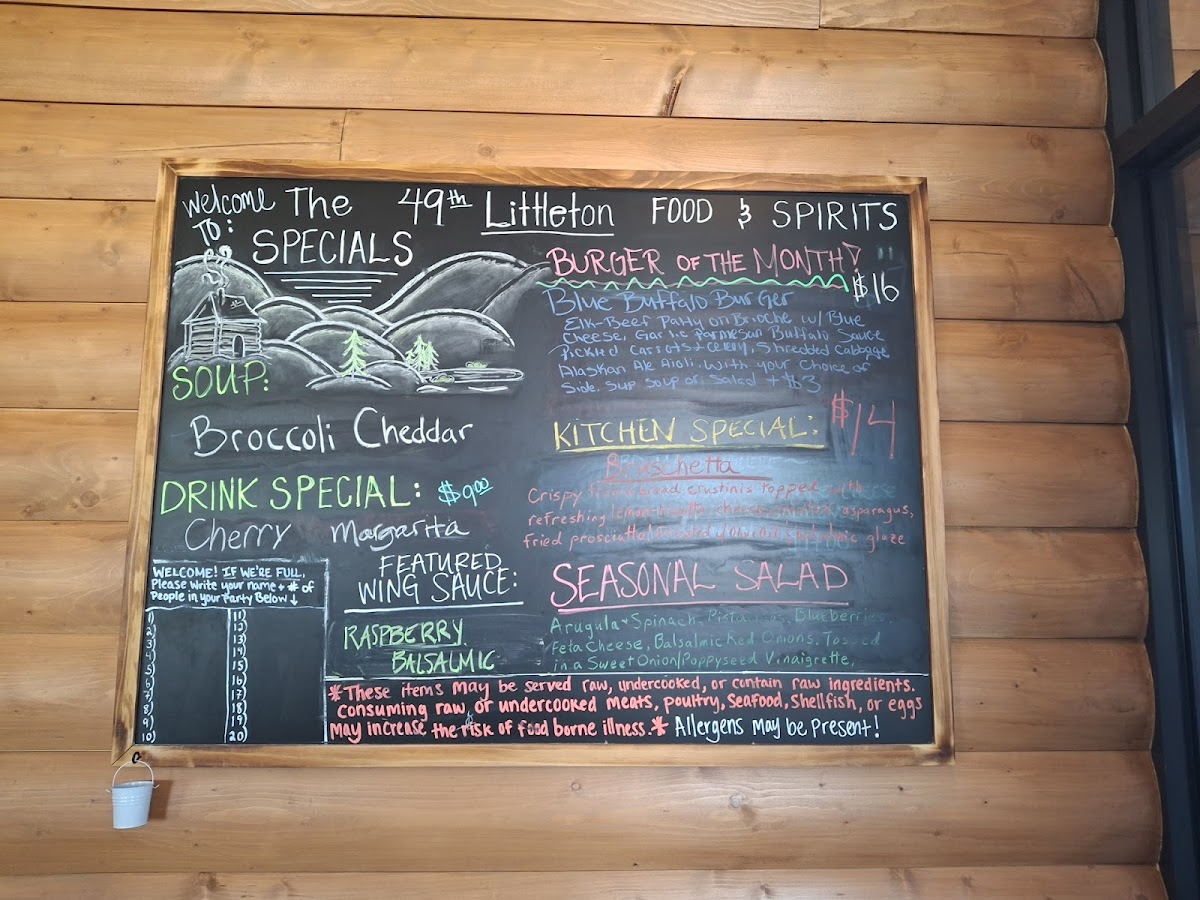 Welcome To: The 49th Littleton FOOD & SPIRITS
SPECIALS
SOUP:
Broccoli Cheddar
DRINK SPECIAL: $9.00
Cherry Margarita
WELCOME! IF WE'RE FULL,
Please Write your name + # of
People in your Party Below ↓
1) 11)
2) 12)
3) 13)
4) 14)
5) 15)
6) 16)
7) 17)
8) 18)
9) 19)
10) 20)
FEATURED
WING SAUCE:
RASPBERRY
BALSALMIC
BURGER OF THE MONTH!
$16
Blue Buffalo Burger
Elk-Beef Patty on Brioche w/ Blue
Cheese, Garlic Parmesan Buffalo Sauce
Pickled Carrots + Celery, Shredded Cabbage
Alaskan Ale Aioli. With your choice of
Side. Sub Soup or Salad + $3
KITCHEN SPECIAL: $14
Bruschetta
Crispy bread crustinis topped with
refreshing lemon cheese, asparagus,
fried prosciutto glaze
SEASONAL SALAD
Arugula + Spinach, Pistachios, Blueberries,
Feta Cheese, Balsalmic Red Onions. Tossed
in a Sweet Onion/Poppyseed Vinaigrette.
*These items may be served raw, undercooked, or contain raw ingredients.
Consuming raw or undercooked meats, poultry, Seafood, Shellfish, or eggs
may increase the risk of food borne illness.* Allergens may be Present!